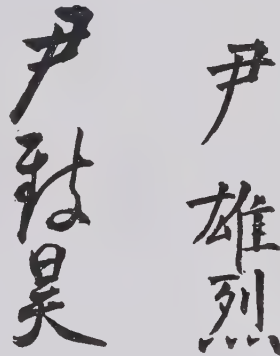 尹雄烈
尹致昊